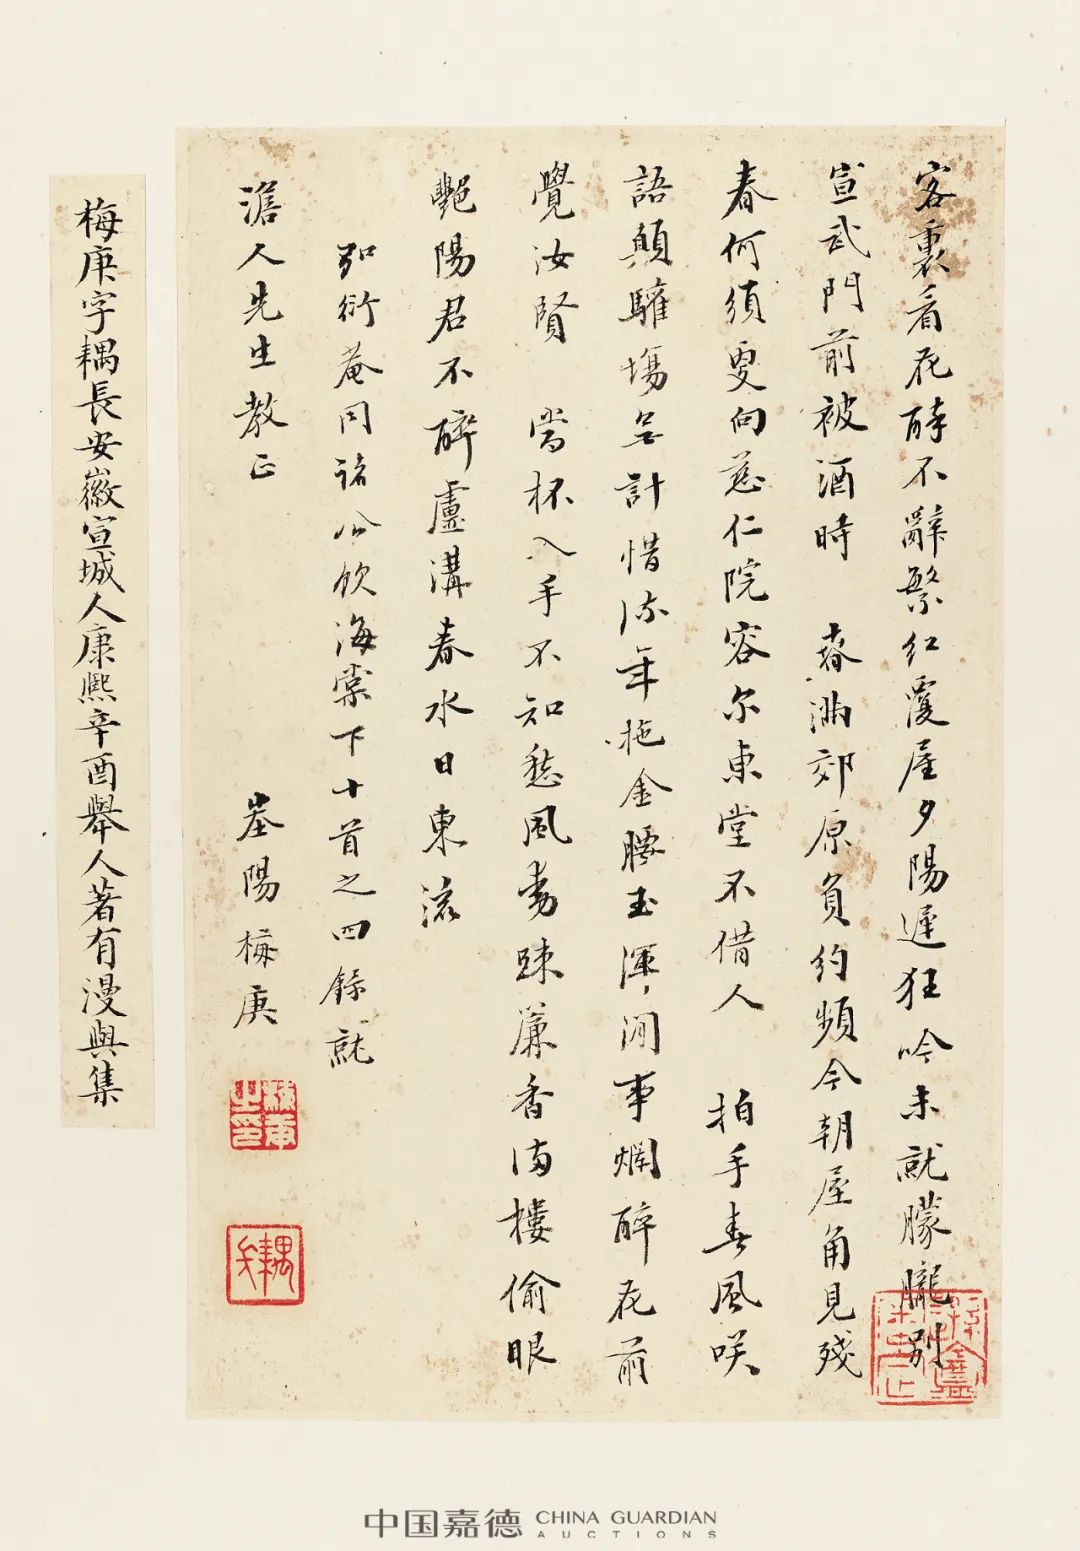 客裏看花醉不辭繁紅覆屋夕陽遲狂吟未就朦朧別
宣武門前被酒時　春滿郊原負約頻今朝屋角見殘
春何須更向慈仁院容尔東堂不借人　拍手春風咲
語顛驩場無計惜流年拖金腰玉渾閒事爛醉花前
覺汝賢　當杯入手不知愁風動疎簾香滿樓偷眼
艷陽君不醉盧溝春水日東流
衍菴同諸公飲海棠下十首之四錄就
澹人先生教正
峚陽梅庚
梅庚字耦長安徽宣城人康熙辛酉舉人著有漫與集
中国嘉德 CHINA GUARDIAN
AUCTIONS